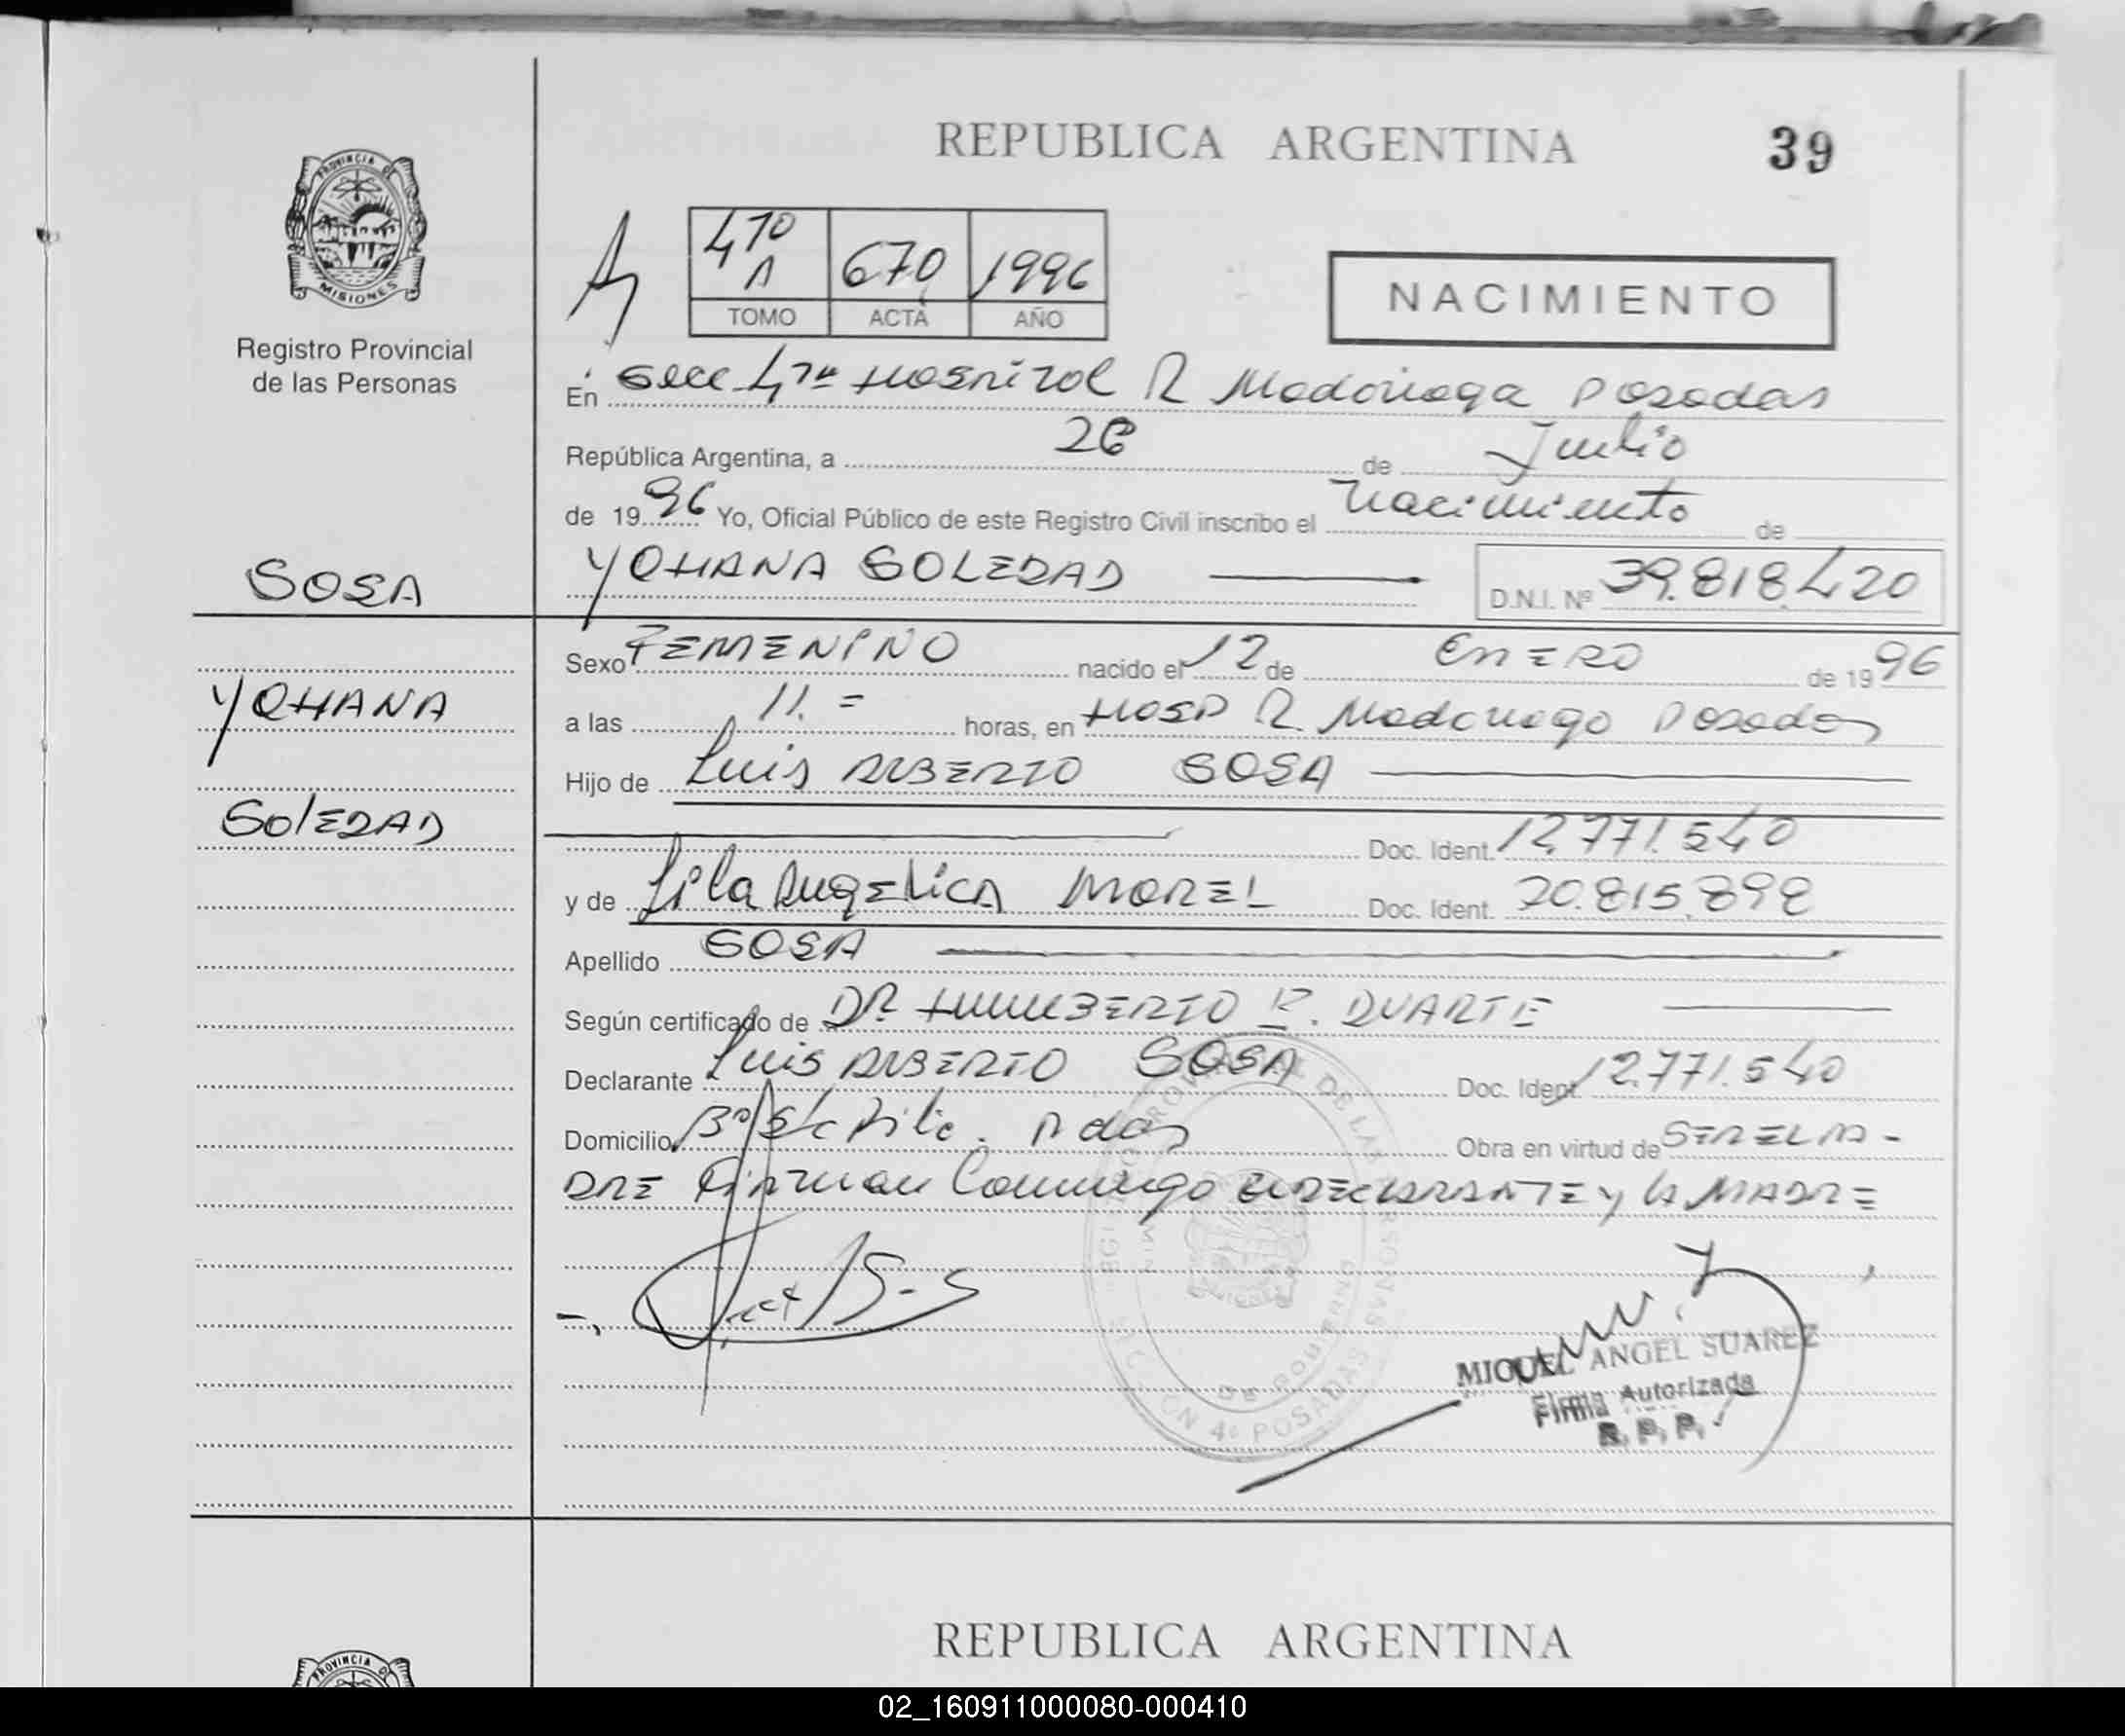 REPUBLICA ARGENTINA
39
PROVINCIA DE
MISIONES
Registro Provincial
de las Personas
47º
A
670
1996
TOMO
ACTA
AÑO
NACIMIENTO
En Secc 4ta Hospital R Madariaga Posadas
República Argentina, a 26 de Junio
de 1996 Yo, Oficial Público de este Registro Civil inscribo el nacimiento de
YOHANA SOLEDAD
D.N.I. Nº 39.818.420
SOSA
YOHANA
SOLEDAD
Sexo FEMENINO nacido el 12 de ENERO de 1996
a las 11.= horas, en Hosp R Madariaga Posadas
Hijo de Luis ALBERTO SOSA
Doc. Ident. 12.771.540
y de Lila ANGELICA MOREL Doc. Ident. 20.815.898
Apellido SOSA
Según certificado de DR HUMBERTO R. DUARTE
Declarante Luis ALBERTO SOSA Doc. Ident. 12.771.540
Domicilio Bº Sta Pdas Obra en virtud de SER EL PA-
DRE Firman Conmigo EL DECLARANTE y LA MADRE
MIGUEL ANGEL SUAREZ
Firma Autorizada
R. P. P.
REPUBLICA ARGENTINA
PROVINCIA DE
02_160911000080-000410